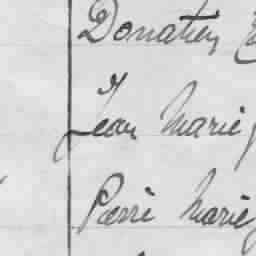 Donatien
Jean Marie
Pierre Marie